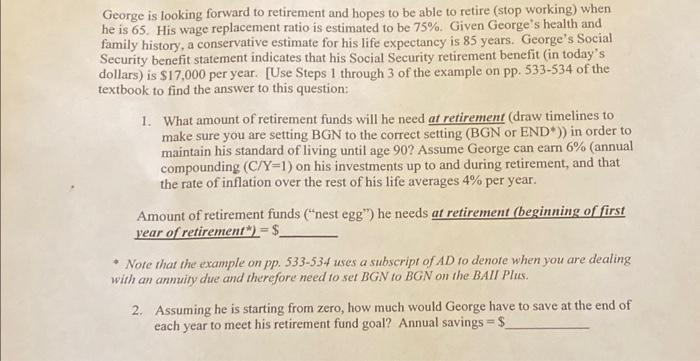 George is looking forward to retirement and hopes to be able to retire (stop working) when
he is 65. His wage replacement ratio is estimated to be 75%. Given George's health and
family history, a conservative estimate for his life expectancy is 85 years. George's Social
Security benefit statement indicates that his Social Security retirement benefit (in today's
dollars) is $17,000 per year. [Use Steps 1 through 3 of the example on pp. 533-534 of the
textbook to find the answer to this question:
1. What amount of retirement funds will he need at retirement (draw timelines to
make sure you are setting BGN to the correct setting (BGN or END*)) in order to
maintain his standard of living until age 90? Assume George can earn 6% (annual
compounding (C/Y=1) on his investments up to and during retirement, and that
the rate of inflation over the rest of his life averages 4% per year.
Amount of retirement funds ("nest egg") he needs at retirement (beginning of first
year of retirement*) = $______
* Note that the example on pp. 533-534 uses a subscript of AD to denote when you are dealing
with an annuity due and therefore need to set BGN to BGN on the BAII Plus.
2. Assuming he is starting from zero, how much would George have to save at the end of
each year to meet his retirement fund goal? Annual savings = $______